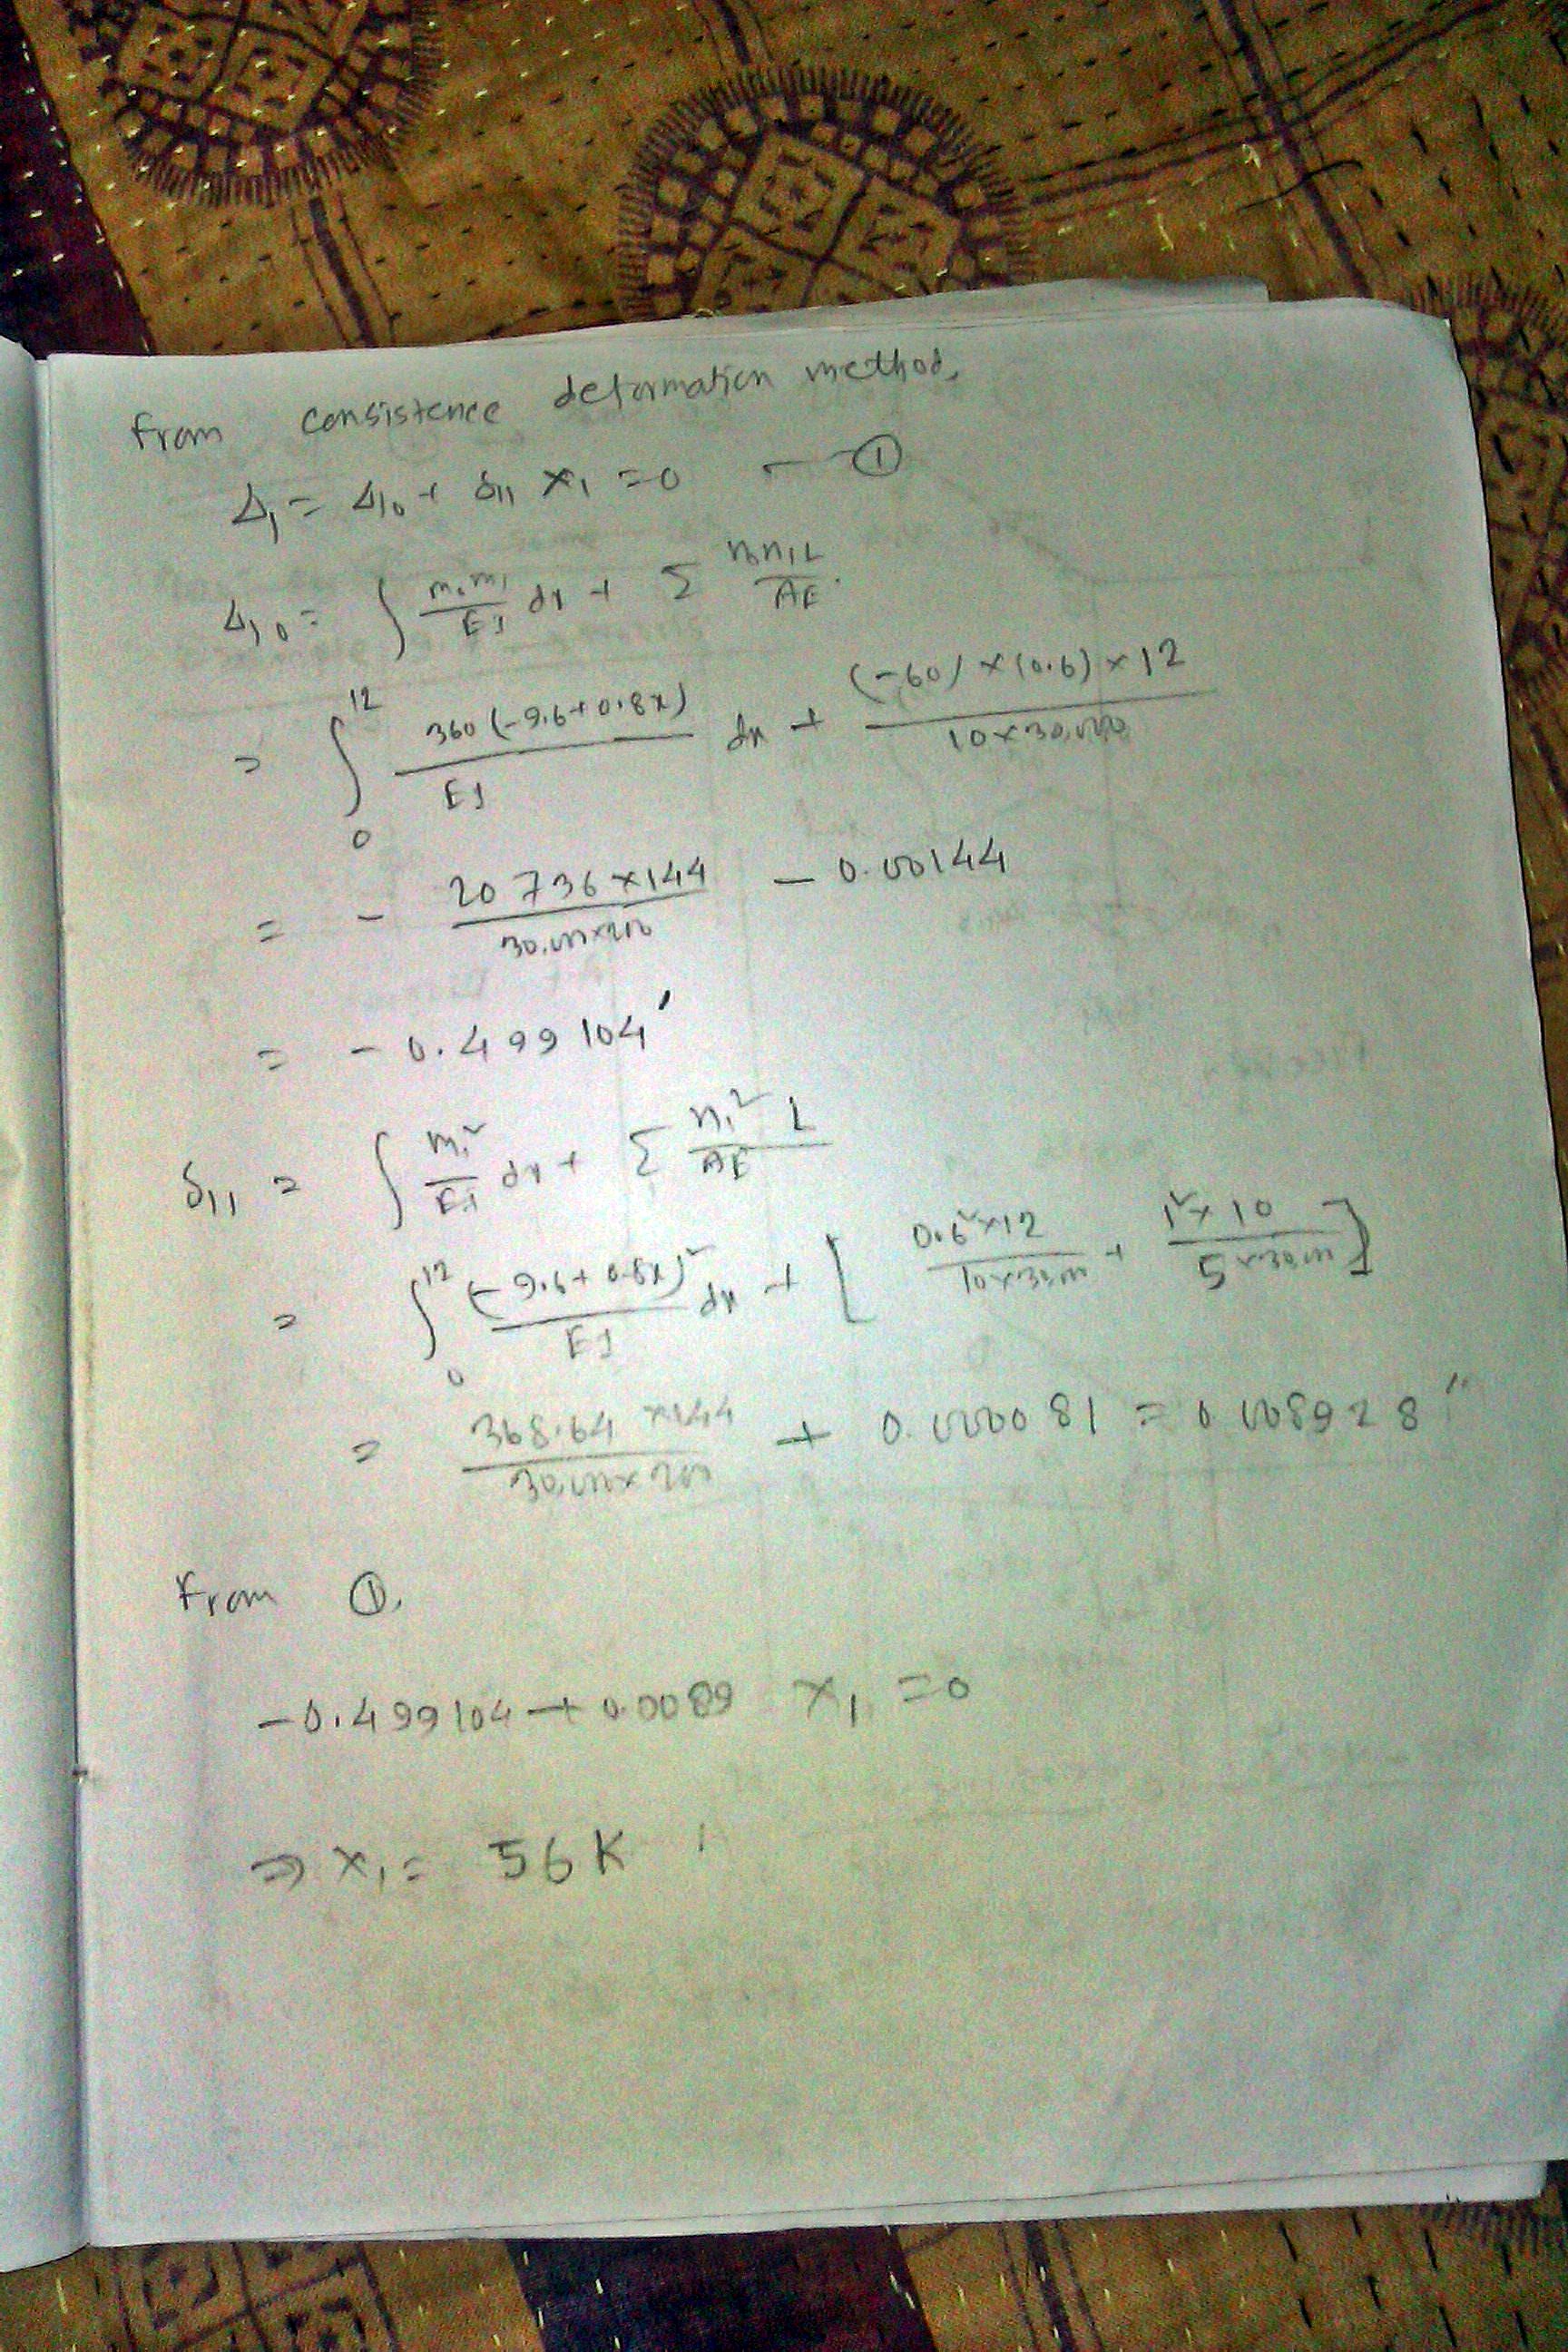 From consistence deformation method,
Δ₁ = Δ₁₀ + δ₁₁ X₁ = 0 — ①
Δ₁₀ = ∫ m₀m₁/EI dx + Σ n₀n₁L/AE
= ∫₀¹² 360(-9.6+0.8x)/EI dx + (-60)×(0.6)×12/10×30000
= - 20736×144/30,000×200 - 0.00144
= - 0.499104"
δ₁₁ = ∫ m₁²/EI dx + Σ n₁² L/AE
= ∫₀¹² (-9.6+0.8x)²/EI dx + [0.6²×12/10×30000 + 1²×10/5×30000]
= 368.64×144/30,000×200 + 0.000081 = 0.008928"
From ①,
-0.499104 + 0.0089 X₁ = 0
⇒ X₁ = 56 K